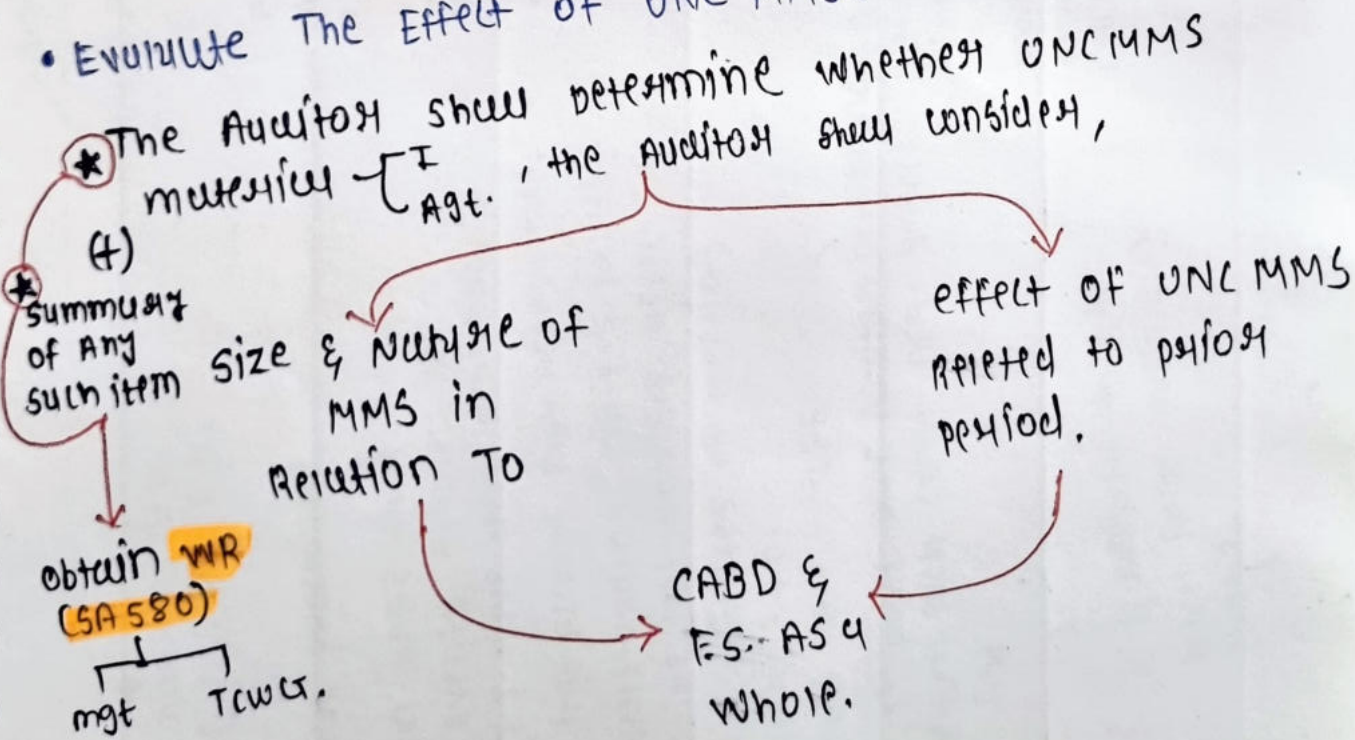 • Evaluate The Effect of UNC MMS
★ The Auditor shall Determine whether UNC MMS
material { I Agt. , the Auditor shall consider,
(+)
★ summary
of Any
such item
Size & Nature of
MMS in
Relation To
effect of UNC MMS
Related to prior
period.
Obtain WR
(SA 580)
mgt TCWG.
CABD &
F.S. AS a
whole.